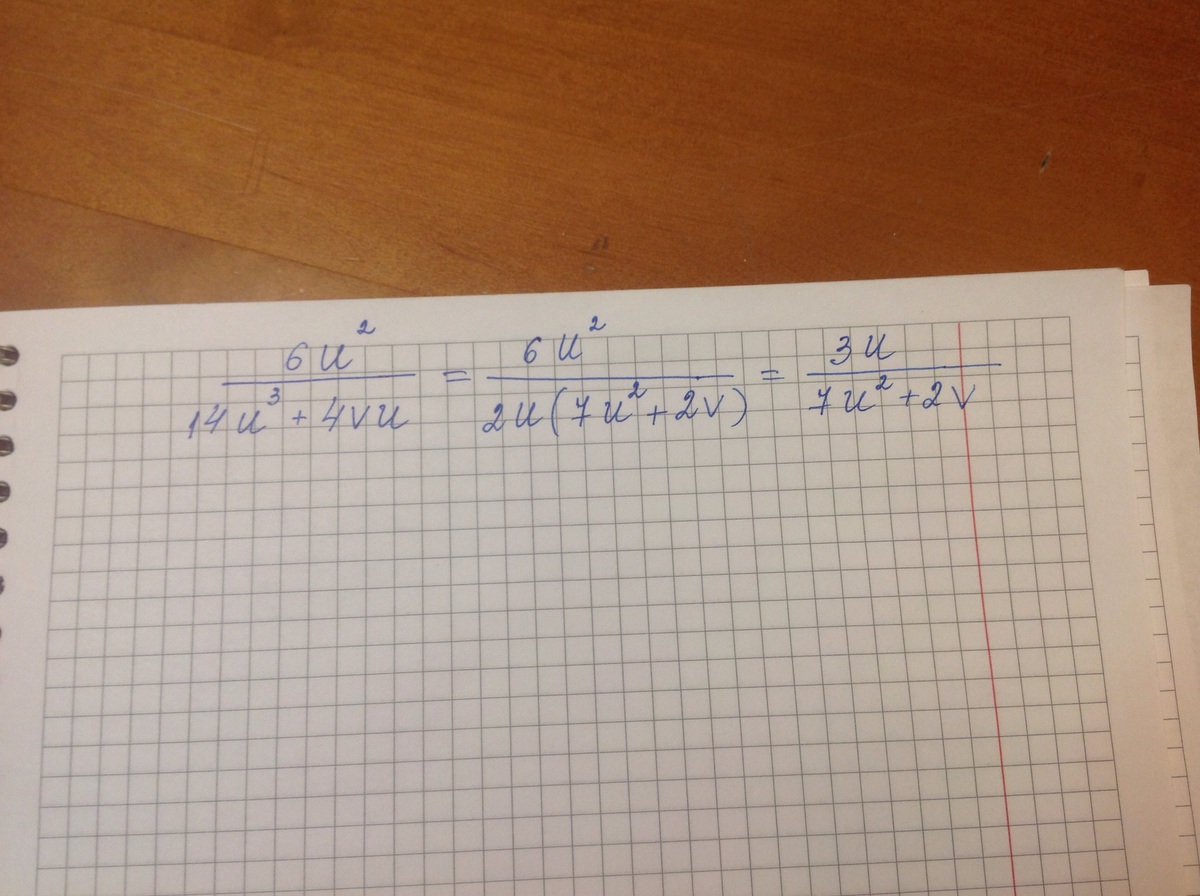 6u²/(14u³ + 4vu) = 6u²/(2u(7u² + 2v)) = 3u/(7u² + 2v)